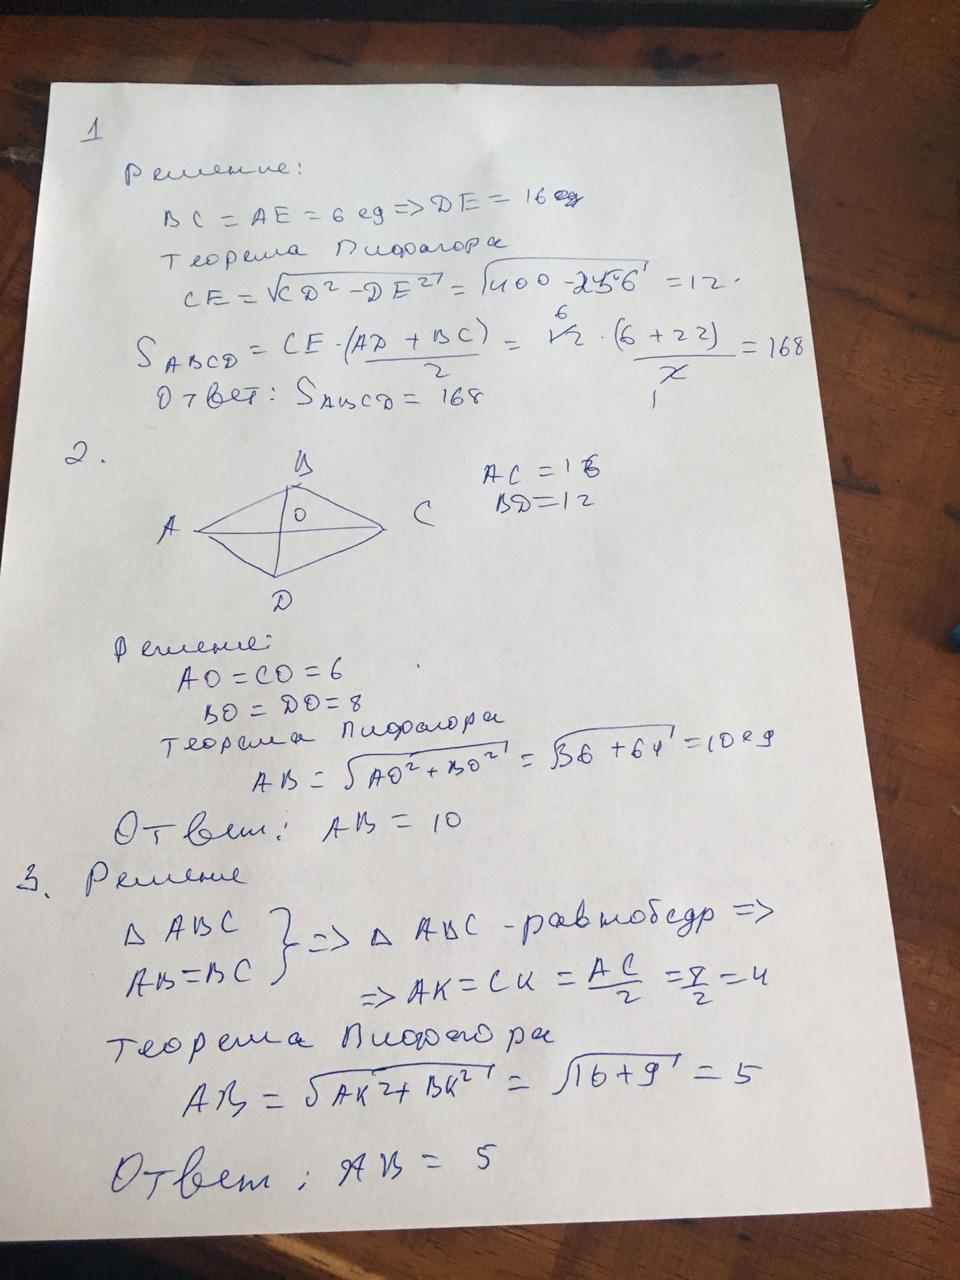 1
Решение:
BC = AE = 6 ед => DE = 16 ед
Теорема Пифагора
CE = √CD² - DE² = √400 - 256 = 12.
S ABCD = CE · (AD + BC) / 2 = 12 6 · (6 + 22) / 2 1 = 168
Ответ: S ABCD = 168
2.
B
AC = 16
BD = 12
A O C
D
Решение:
AO = CO = 6
BO = DO = 8
Теорема Пифагора
AB = √AO² + BO² = √36 + 64 = 10 ед
Ответ: AB = 10
3. Решение
Δ ABC } => Δ ABC - равнобедр =>
AB = BC
=> AK = CK = AC / 2 = 8 / 2 = 4
Теорема Пифагора
AB = √AK² + BK² = √16 + 9 = 5
Ответ: AB = 5